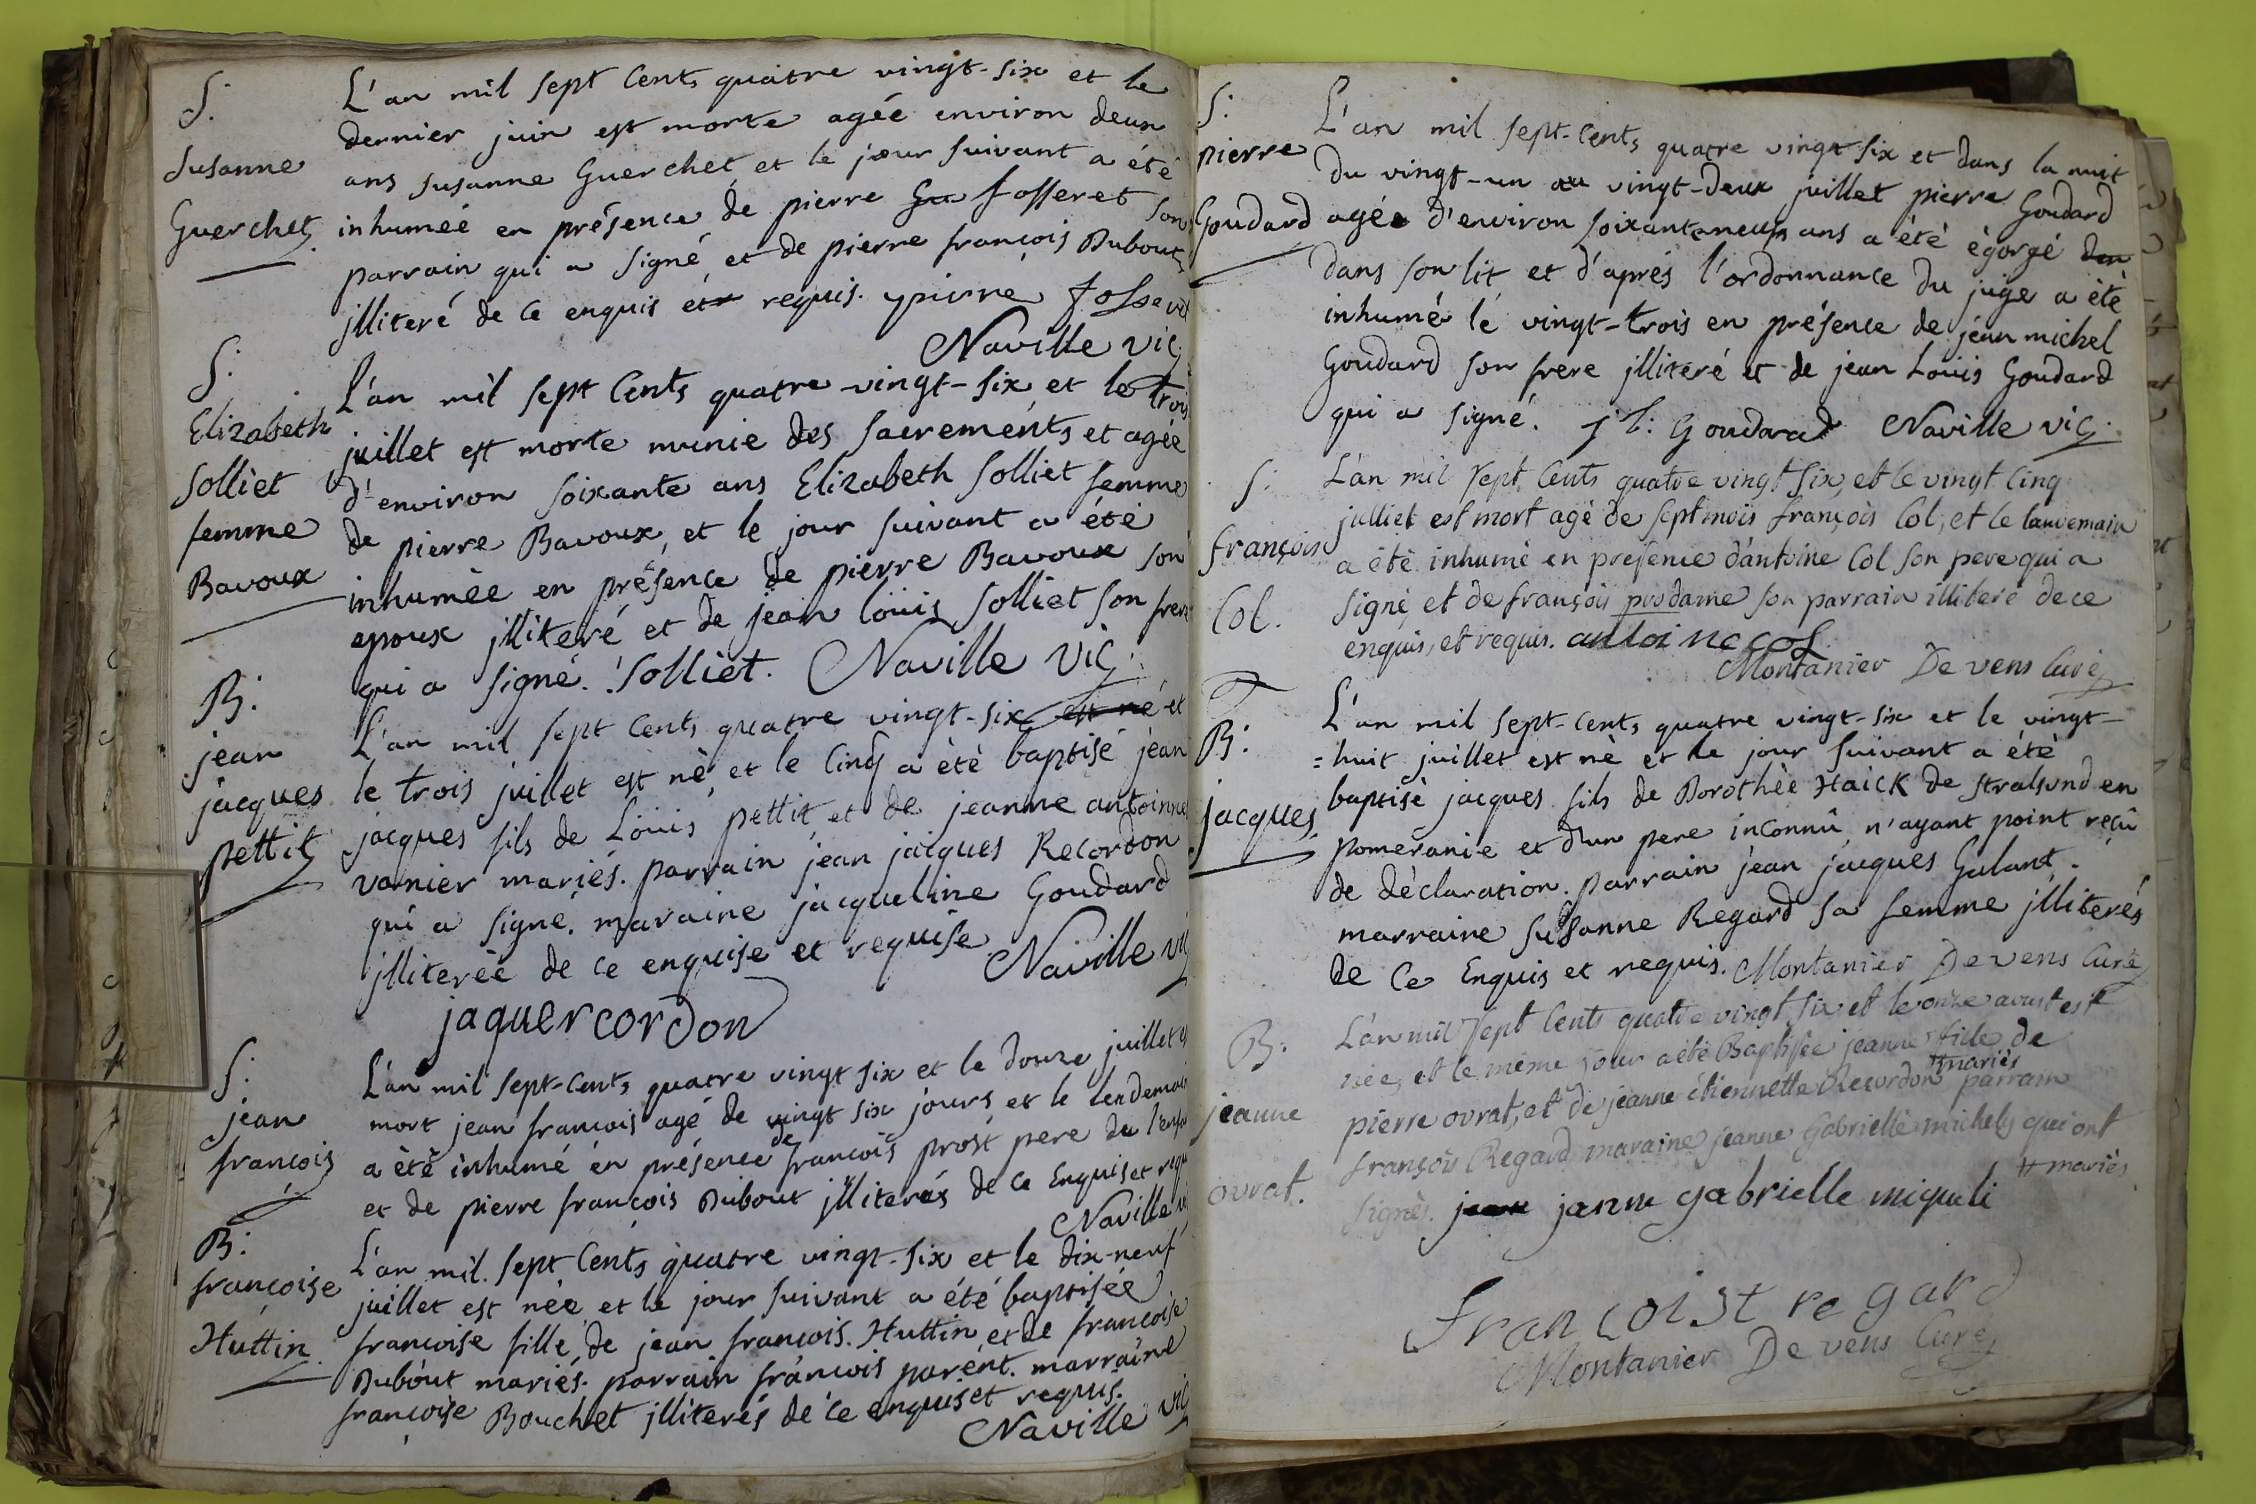 S:
Susanne
Guerchet
L'an mil sept Cents quatre vingt-six et le
dernier juin est morte agée environ deux
ans susanne Guerchet et le jour suivant a été
inhumée en présence de pierre Ga fosseret son
parrain qui a signé et de pierre françois Dubout
jlliteré de ce enquis et requis. pierre fosseret
Naville vic
S:
Elizabeth
Solliet
femme
Bavoux
L'an mil sept Cents quatre-vingt-six et le trois
juillet est morte munie des sacrements et agée
d'environ soixante ans Elizabeth Solliet femme
de pierre Bavoux, et le jour suivant a été
inhumée en présence de pierre Bavoux son
epoux jlliteré et de jean loüis Solliet son frere
qui a signé. Solliet. Naville vic:
B:
jean
jacques
pettit
L'an mil sept Cents quatre vingt-six est né et
le trois juillet est né, et le Cinq a été baptisé jean
jacques fils de Loüis pettit et de jeanne antoinne
vanier mariés. parrain jean jacques Recordon
qui a signé. maraine jacqueline Goudard
jlliterée de ce enquise et requise. Naville vic
jaquercordon
S:
jean
françois
L'an mil sept-Cents quatre vingt six et le douze juillet est
mort jean françois agé de vingt six jours et le lendemain
a été inhumé en présence de françois prost pere de l'enfant
et de pierre françois Dubout jlliterés de ce Enquis et requis
Naville vic
B:
françoise
Huttin
L'an mil sept Cents quatre vingt-six et le dix-neuf
juillet est née et le jour suivant a été baptisée
francoise fille de jean françois Huttin et de françoise
Dubout mariés. parrain françois parent. marraine
françoise Bouchet jlliterés de ce enquis et requis.
Naville vic
S:
pierre
Goudard
L'an mil sept-Cents quatre vingt six et dans la nuit
du vingt-un au vingt-deux juillet pierre Goudard
agée d'environ soixante neuf ans a été égorgé dan
dans son lit et d'aprés l'ordonnance du juge a été
inhumé le vingt-trois en présence de jean michel
Goudard son frere jlliteré et de jean Louis Goudard
qui a signé. j l: Goudard Naville vic:
S:
françois
Col.
L'an mil sept Cents quatre vingt six, et le vingt cinq
julliet est mort agé de sept mois françois Col, et le lauvemain
a été inhumé en presence d'antoine Col son pere qui a
signé, et de françois prodame son parrain illiteré de ce
enquis, et requis. antoine col
Montanier De vens Curé
B:
jacques
L'an mil sept-Cents quatre vingt-six et le vingt-
=huit juillet est né et le jour suivant a été
baptisé jacques fils de Dorothée Haick de stralsund en
pomeranie et d'un pere inconnû n'ayant point reçû
de déclaration. parrain jean jacques Galant.
marraine Susanne Regard sa femme jlliterés
de Ce Enquis et requis. Montanier De vens Curé
B:
jeanne
ovrat.
L'an mil Sept Cents quatre vingt six et le onze aoust est
née, et le même jour a été Baptisée jeanne fille de
pierre ovrat, et de jeanne étiennette Recordon # mariés parrain
françois Regard maraine jeanne Gabrielle michely qui ont
signés. jean janne gabrielle miqueli # mariés
francoist regard
Montanier De vens Curé